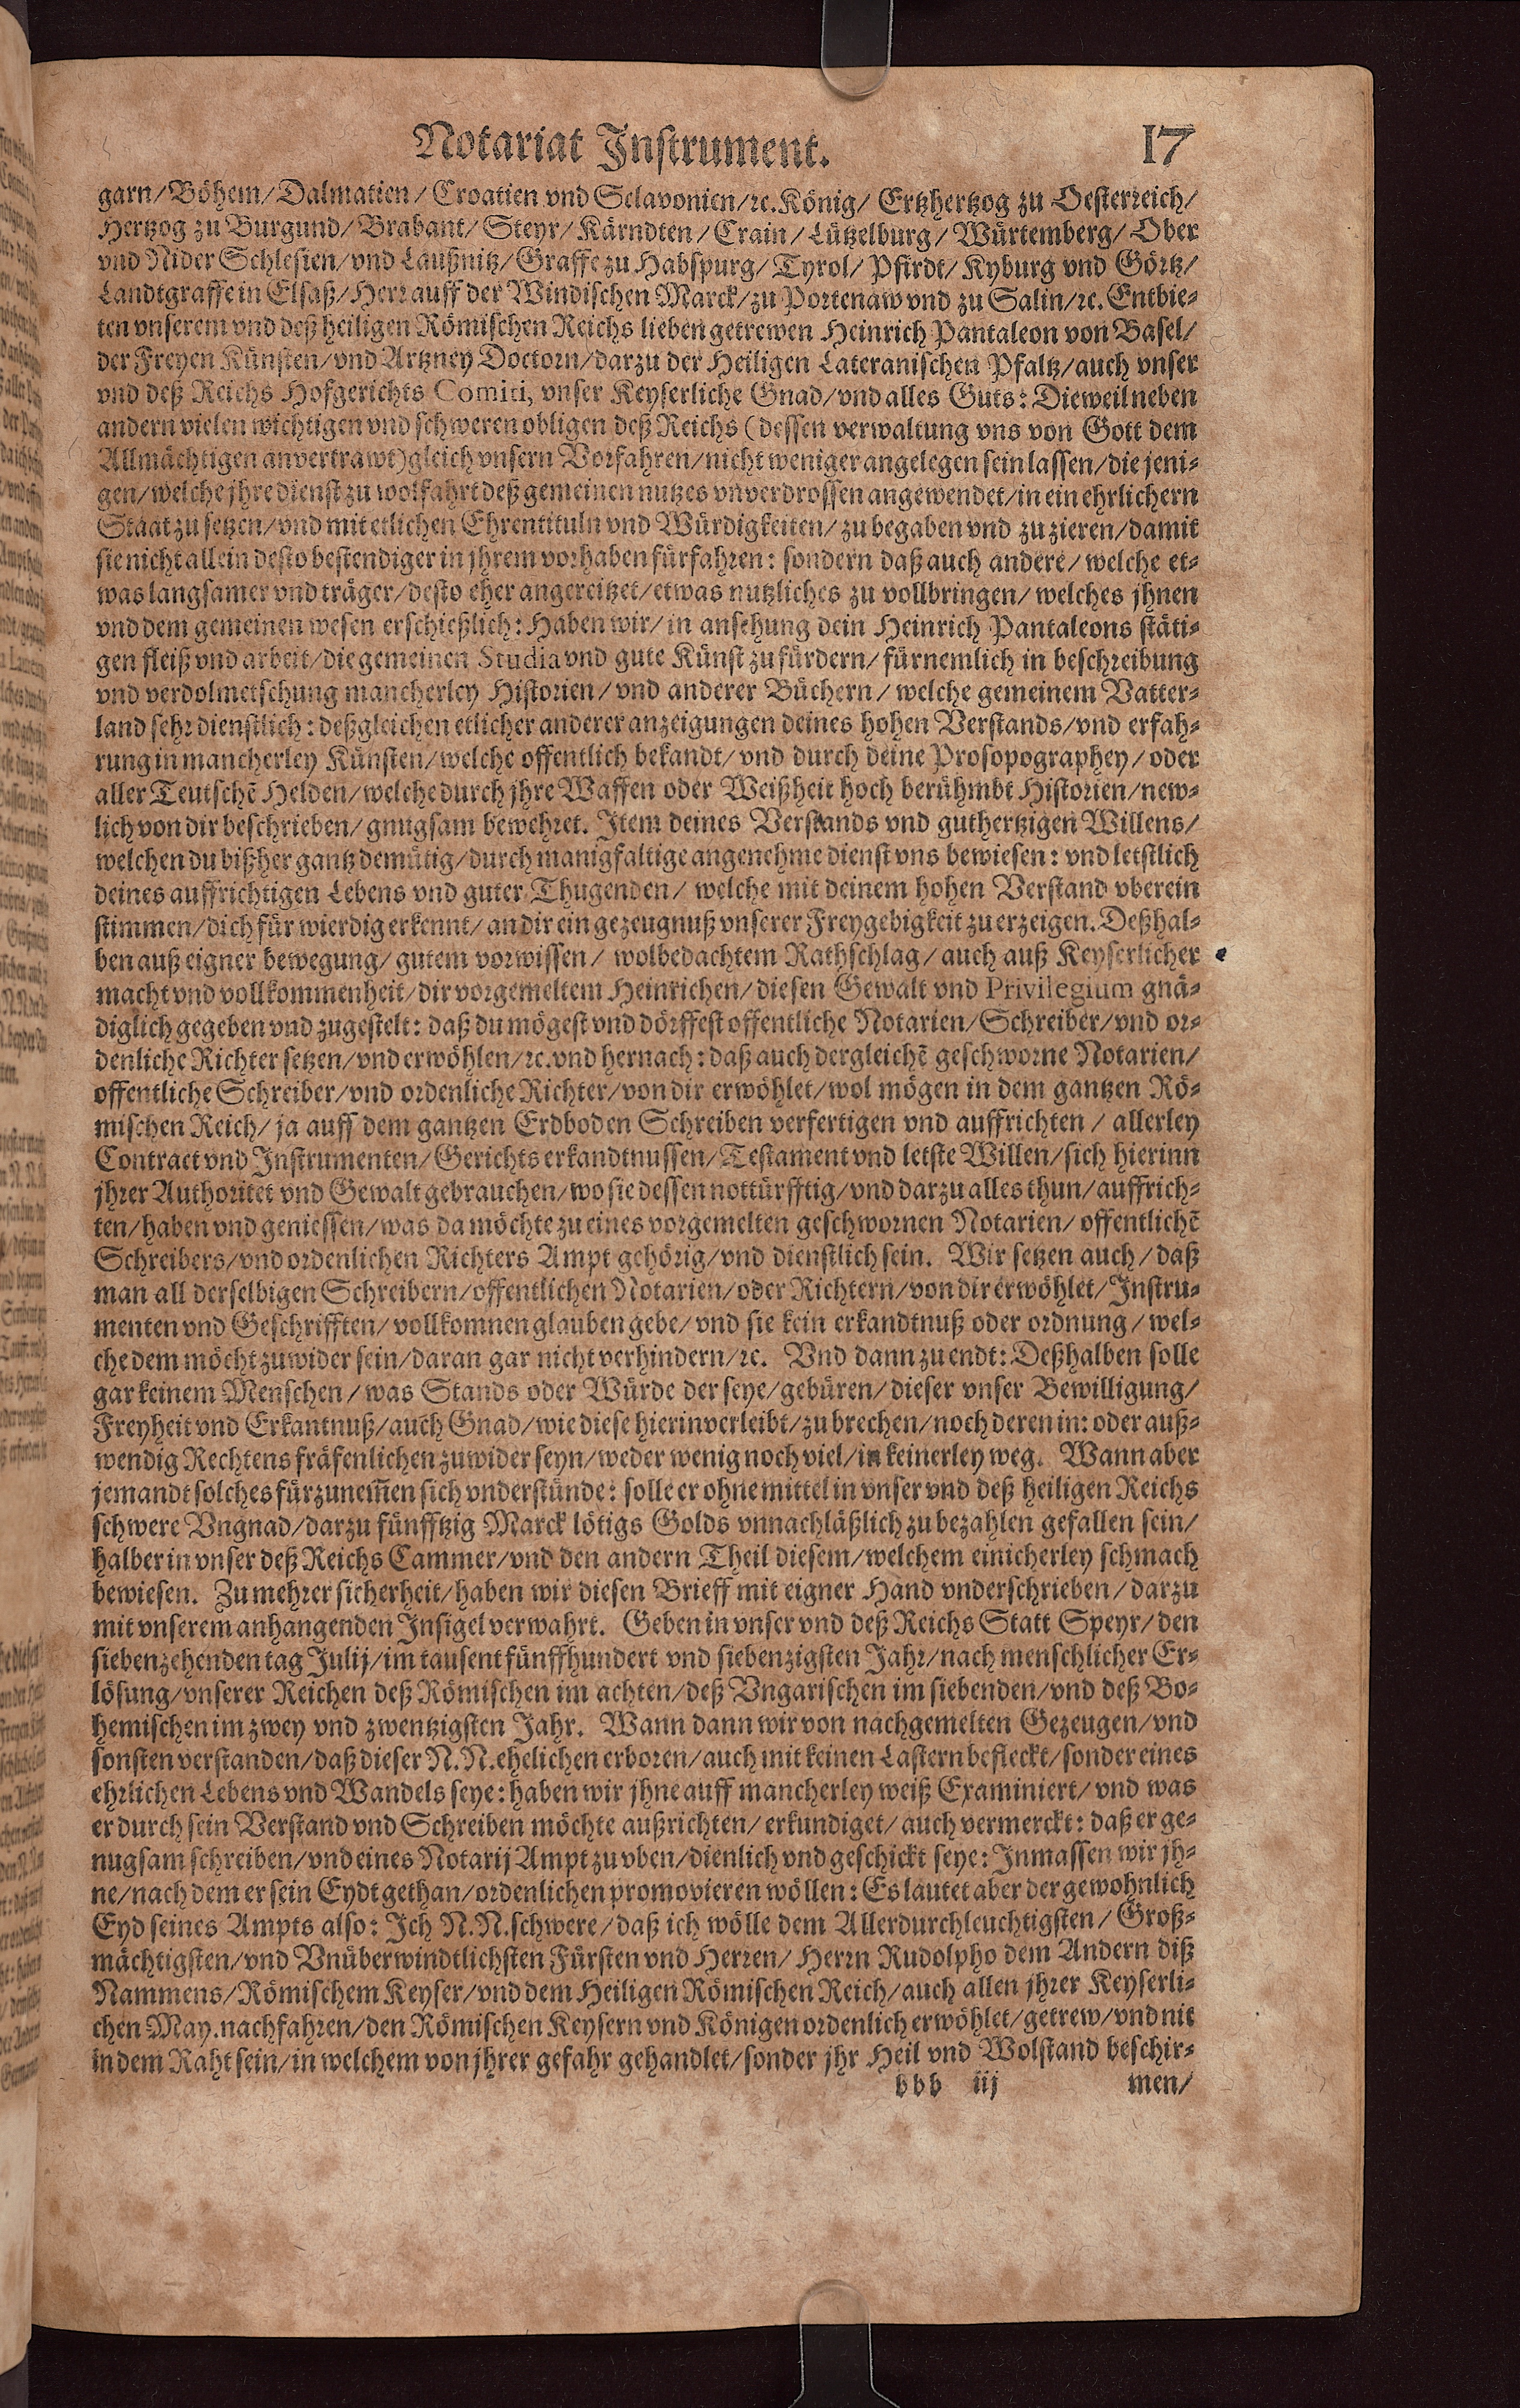 Notariat Instrument. 17
garn/ Böhem/ Dalmatien/ Croatien vnd Sclavonien/ ꝛc. König/ Ertzhertzog zu Oesterreich/
Hertzog zu Burgund/ Brabant/ Steyr/ Kärndten/ Crain/ Lützelburg/ Würtemberg/ Ober
vnd Nider Schlesien/ vnd Laußnitz/ Graffe zu Habspurg/ Tyrol/ Pfirdt/ Kyburg vnd Görtz/
Landtgraffe in Elsaß/ Herr auff der Windischen Marck/ zu Portenaw vnd zu Salin/ ꝛc. Entbie-
ten vnserem vnd deß heiligen Römischen Reichs lieben getrewen Heinrich Pantaleon von Basel/
der Freyen Künsten/ vnd Artzney Doctorn/ darzu der Heiligen Lateranischen Pfaltz/ auch vnser
vnd deß Reichs Hofgerichts Comiti, vnser Keyserliche Gnad/ vnd alles Guts: Dieweil neben
andern vielen wichtigen vnd schweren obligen deß Reichs (dessen verwaltung vns von Gott dem
Allmächtigen anvertrawt) gleich vnsern Vorfahren/ nicht weniger angelegen sein lassen/ die jeni-
gen/ welche jhre dienst zu wolfahrt deß gemeinen nutzes vnverdrossen angewendet/ in ein ehrlichern
Staat zu setzen/ vnd mit etlichen Ehrentituln vnd Würdigkeiten/ zu begaben vnd zu zieren/ damit
sie nicht allein desto bestendiger in jhrem vorhaben fürfahren: sondern daß auch andere/ welche et-
was langsamer vnd träger/ desto eher angereitzet/ etwas nutzliches zu vollbringen/ welches jhnen
vnd dem gemeinen wesen erschießlich: Haben wir/ in ansehung dein Heinrich Pantaleons stäti-
gen fleiß vnd arbeit/ die gemeinen Studia vnd gute Künst zu fürdern/ fürnemlich in beschreibung
vnd verdolmetschung mancherley Historien/ vnd anderer Büchern/ welche gemeinem Vatter-
land sehr dienstlich: deßgleichen etlicher anderer anzeigungen deines hohen Verstands/ vnd erfah-
rung in mancherley Künsten/ welche offentlich bekandt/ vnd durch deine Prosopographey/ oder
aller Teutschẽ Helden/ welche durch jhre Waffen oder Weißheit hoch berühmbt Historien/ new-
lich von dir beschrieben/ gnugsam bewehret. Item deines Verstands vnd guthertzigen Willens/
welchen du bißher gantz demütig/ durch manigfaltige angenehme dienst vns bewiesen: vnd letstlich
deines auffrichtigen Lebens vnd guter Thugenden/ welche mit deinem hohen Verstand vberein
stimmen/ dich für wierdig erkennt/ an dir ein gezeugnuß vnserer Freygebigkeit zu erzeigen. Deßhal-
ben auß eigner bewegung/ gutem vorwissen/ wolbedachtem Rathschlag/ auch auß Keyserlicher
macht vnd vollkommenheit/ dir vorgemeltem Heinrichen/ diesen Gewalt vnd Privilegium gnä-
diglich gegeben vnd zugestelt: daß du mögest vnd dörffest offentliche Notarien/ Schreiber/ vnd or-
denliche Richter setzen/ vnd erwöhlen/ ꝛc. vnd hernach: daß auch dergleichẽ geschworne Notarien/
offentliche Schreiber/ vnd ordenliche Richter/ von dir erwöhlet/ wol mögen in dem gantzen Rö-
mischen Reich/ ja auff dem gantzen Erdboden Schreiben verfertigen vnd auffrichten/ allerley
Contract vnd Instrumenten/ Gerichts erkandtnussen/ Testament vnd letste Willen/ sich hierinn
jhrer Authoritet vnd Gewalt gebrauchen/ wo sie dessen nottürfftig/ vnd darzu alles thun/ auffrich-
ten/ haben vnd geniessen/ was da möchte zu eines vorgemelten geschwornen Notarien/ offentlichẽ
Schreibers/ vnd ordenlichen Richters Ampt gehörig/ vnd dienstlich sein. Wir setzen auch/ daß
man all derselbigen Schreibern/ offentlichen Notarien/ oder Richtern/ von dir erwöhlet/ Instru-
menten vnd Geschrifften/ vollkomnen glauben gebe/ vnd sie kein erkandtnuß oder ordnung/ wel-
che dem möcht zu wider sein/ daran gar nicht verhindern/ ꝛc. Vnd dann zu endt: Deßhalben solle
gar keinem Menschen/ was Stands oder Würde der seye/ gebüren/ dieser vnser Bewilligung/
Freyheit vnd Erkantnuß/ auch Gnad/ wie diese hierin verleibt/ zu brechen/ noch deren in: oder auß-
wendig Rechtens fräfenlichen zuwider seyn/ weder wenig noch viel/ in keinerley weg. Wann aber
jemandt solches fürzunem̃en sich vnderstünde: solle er ohne mittel in vnser vnd deß heiligen Reichs
schwere Vngnad/ darzu fünfftzig Marck lötigs Golds vnnachläßlich zu bezahlen gefallen sein/
halber in vnser deß Reichs Cammer/ vnd den andern Theil diesem/ welchem einicherley schmach
bewiesen. Zu mehrer sicherheit/ haben wir diesen Brieff mit eigner Hand vnderschrieben/ darzu
mit vnserem anhangenden Insigel verwahrt. Geben in vnser vnd deß Reichs Statt Speyr/ den
siebenzehenden tag Julij/ im tausent fünffhundert vnd siebenzigsten Jahr/ nach menschlicher Er-
lösung/ vnserer Reichen deß Römischen im achten/ deß Vngarischen im siebenden/ vnd deß Bo-
hemischen im zwey vnd zwentzigsten Jahr. Wann dann wir von nachgemelten Gezeugen/ vnd
sonsten verstanden/ daß dieser N. N. ehelichen erboren/ auch mit keinen Lastern befleckt/ sonder eines
ehrlichen Lebens vnd Wandels seye: haben wir jhne auff mancherley weiß Examiniert/ vnd was
er durch sein Verstand vnd Schreiben möchte außrichten/ erkundiget/ auch vermerckt: daß er ge-
nugsam schreiben/ vnd eines Notarij Ampt zu vben/ dienlich vnd geschickt seye: Inmassen wir jh-
ne/ nach dem er sein Eydt gethan/ ordenlichen promovieren wöllen: Es lautet aber der gewohnlich
Eyd seines Ampts also: Ich N. N. schwere/ daß ich wölle dem Allerdurchleuchtigsten/ Groß-
mächtigsten/ vnd Vnüberwindtlichsten Fürsten vnd Herren/ Herrn Rudolpho dem Andern diß
Nammens/ Römischem Keyser/ vnd dem Heiligen Römischen Reich/ auch allen jhrer Keyserli-
chen May. nachfahren/ den Römischen Keysern vnd Königen ordenlich erwöhlet/ getrew/ vnd nit
in dem Raht sein/ in welchem von jhrer gefahr gehandlet/ sonder jhr Heil vnd Wolstand beschir-
bbb iij men/